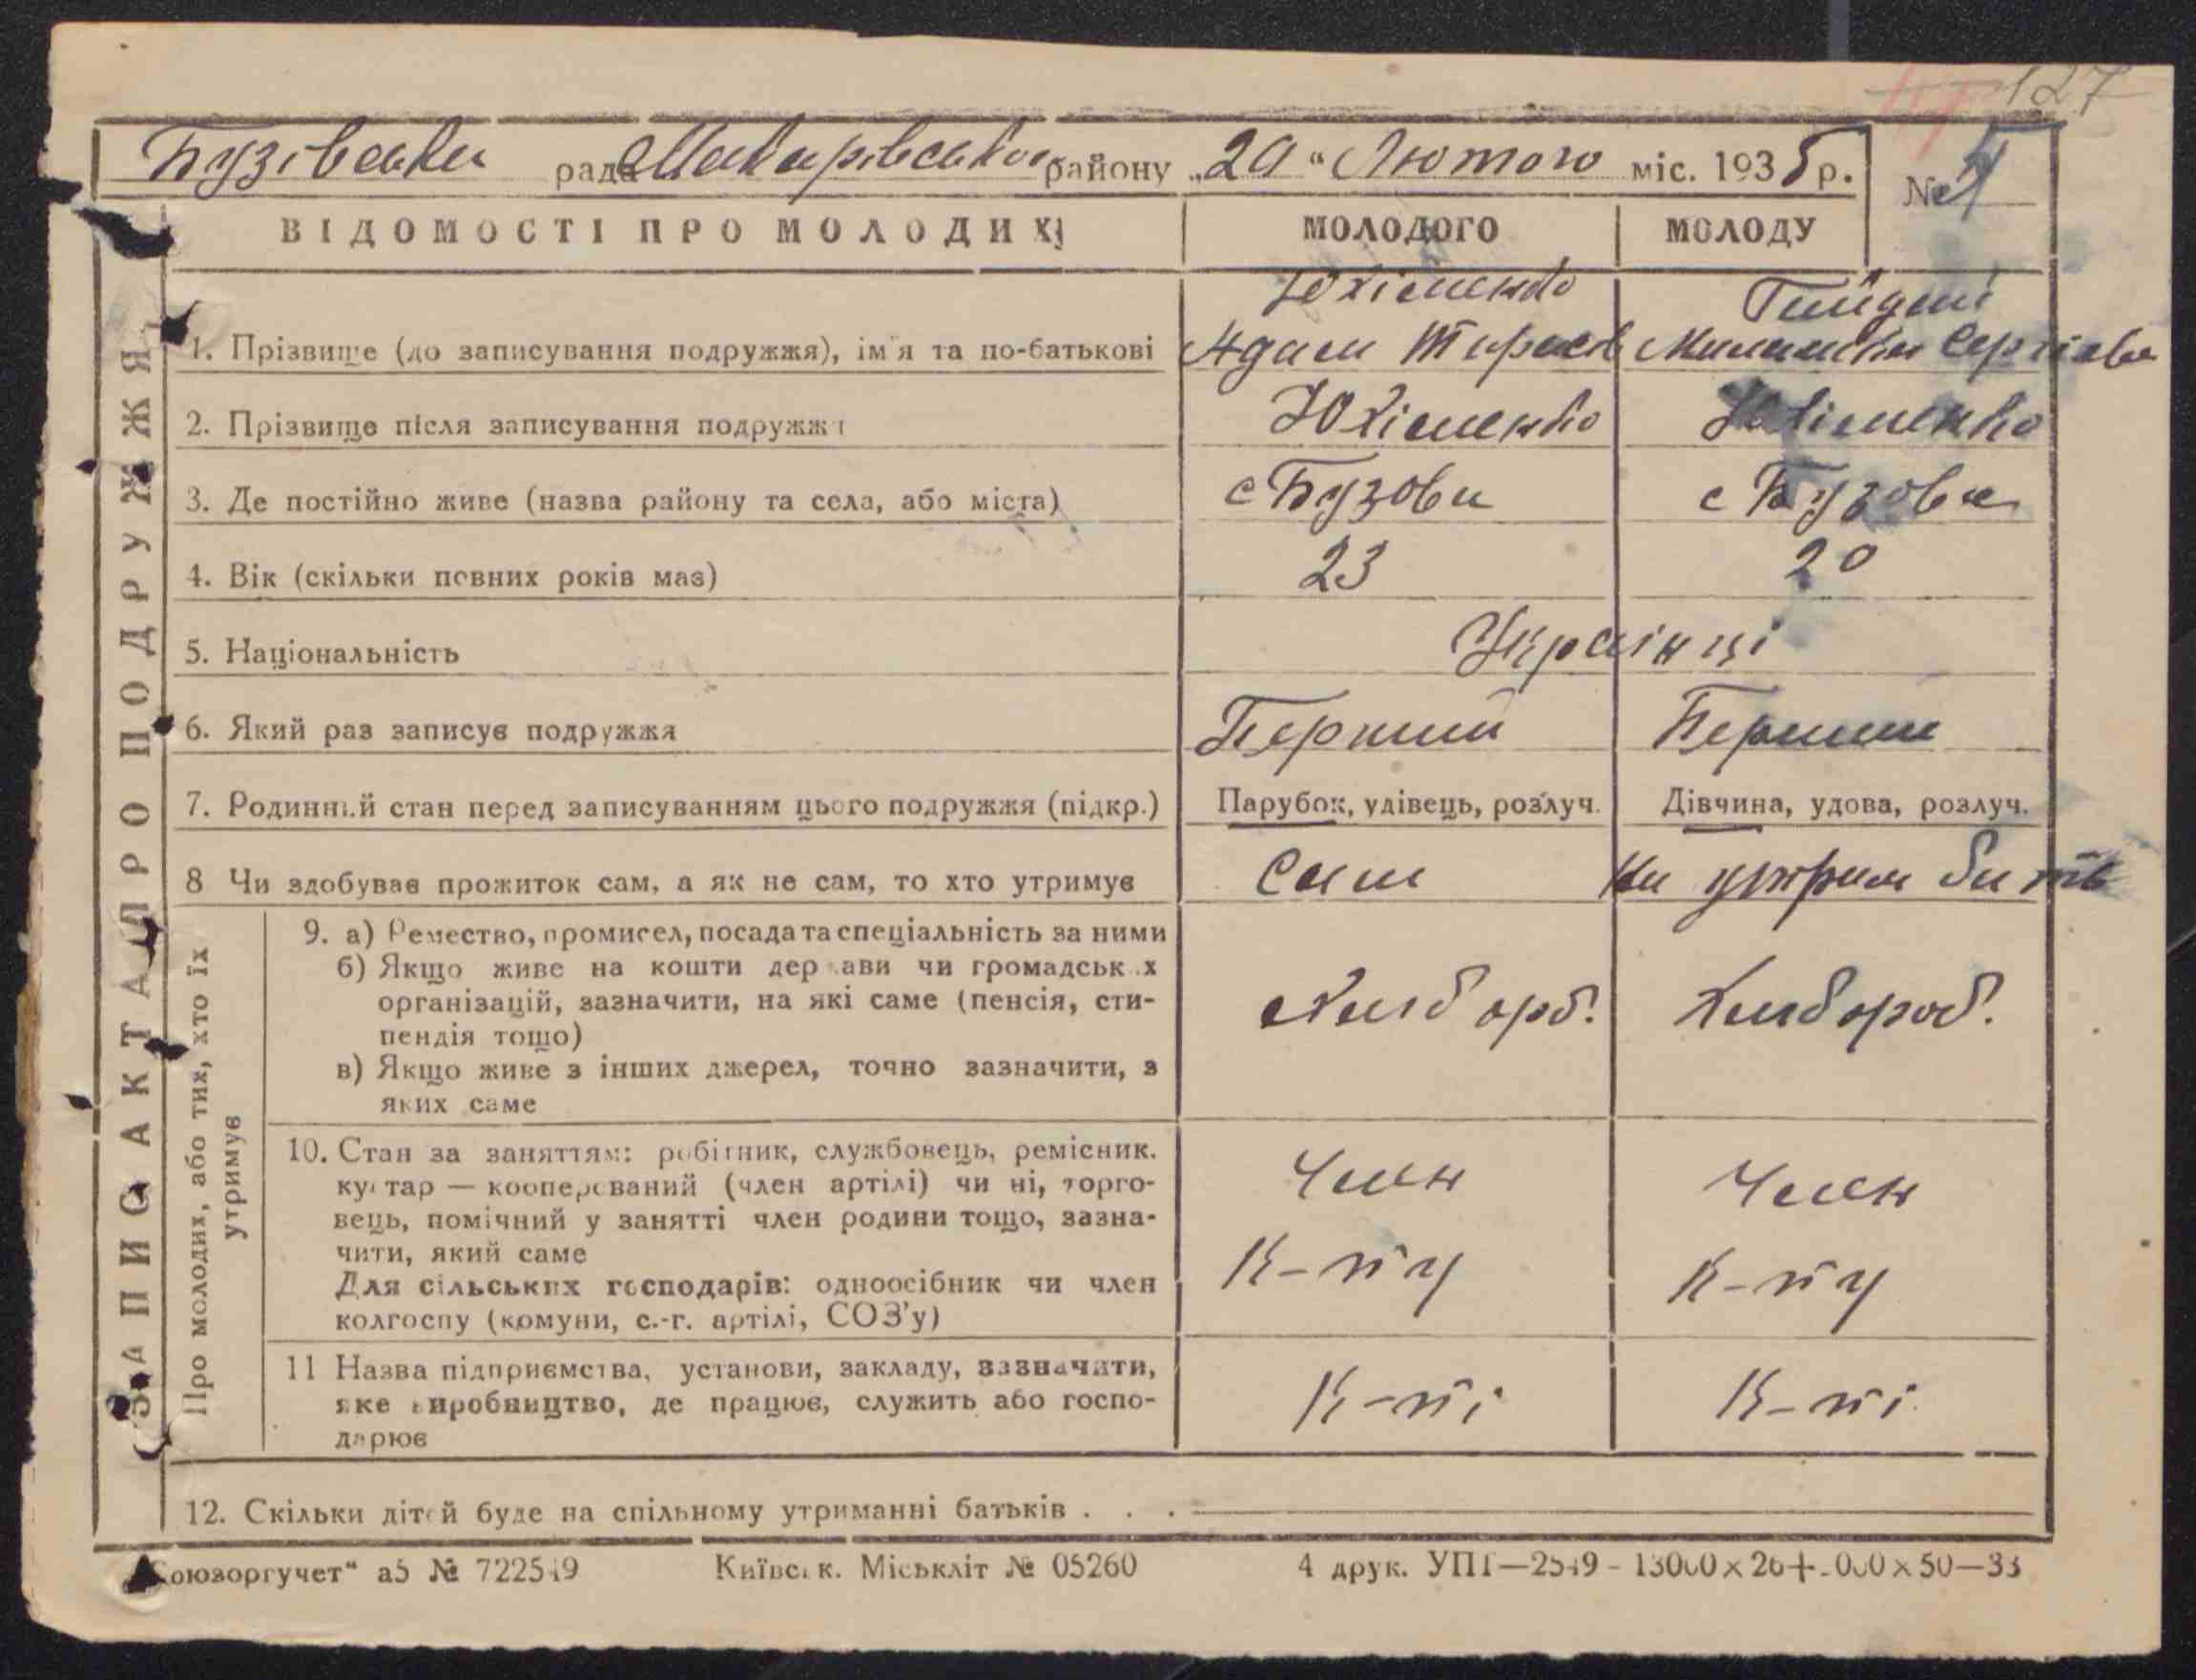 127
Бузівська рада Макарівського району „20“ Лютого міс. 1935 р. №
ВІДОМОСТІ ПРО МОЛОДИХ
МОЛОДОГО
МОЛОДУ
ЗАПИС АКТА ПРО ПОДРУЖЖЯ
1. Прізвище (до записування подружжя), ім'я та по-батькові
Юхіменко
Адам Тарасов
Сергіева
2. Прізвище після записування подружжя
Юхіменко
Юхіменко
3. Де постійно живе (назва району та села, або міста)
с Бузова
с Бузова
4. Вік (скільки повних років має)
23
20
5. Національність
Українці
6. Який раз записує подружжя
Перший
Перший
7. Родинний стан перед записуванням цього подружжя (підкр.)
Парубок, удівець, розлуч.
Дівчина, удова, розлуч.
8 Чи здобуває прожиток сам, а як не сам, то хто утримує
Сам
на утрим батьк
Про молодих, або тих, хто їх утримує
9. а) Ремество, промисел, посада та спеціальність за ними
б) Якщо живе на кошти держави чи громадських
організацій, зазначити, на які саме (пенсія, сти-
пендія тощо)
в) Якщо живе з інших джерел, точно зазначити, з
яких саме
Хлібороб.
Хлібороб.
10. Стан за заняттям: робітник, службовець, ремісник.
кустар — кооперований (член артілі) чи ні, торго-
вець, помічний у занятті член родини тощо, зазна-
чити, який саме
Для сільських господарів: одноосібник чи член
колгоспу (комуни, с.-г. артілі, СОЗ'у)
Член
К-пу
Член
К-пу
11 Назва підприємства, установи, закладу, зазначити,
яке виробництво, де працює, служить або госпо-
дарює
К-пі
К-пі
12. Скільки дітей буде на спільному утриманні батьків . . .
Союзоргучет“ а5 № 722549
Київськ. Міськліт № 05260
4 друк. УПП—2549